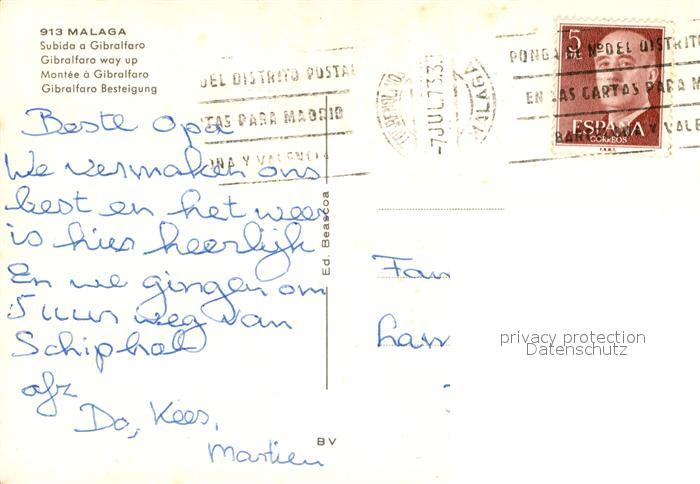 913 MALAGA
Subida a Gibralfaro
Gibralfaro way up
Montée à Gibralfaro
Gibralfaro Besteigung
DEL DISTRITO POSTAL
TAS PARA MADRID
NA Y VALENCIA
-7 JUL.73
MALAGA
PONGA Nº DEL DISTRITO
EN LAS CARTAS PARA M
BAR Y VALE
5
ESPAÑA
CORREOS
Beste Opa
We vermaken ons
best en het weer
is hier heerlijk
En we gingen om
5 uur weg van
Schiphol
afz
Do, Kees,
Martien
Ed. Beascoa
BV
Fam
privacy protection
Datenschutz